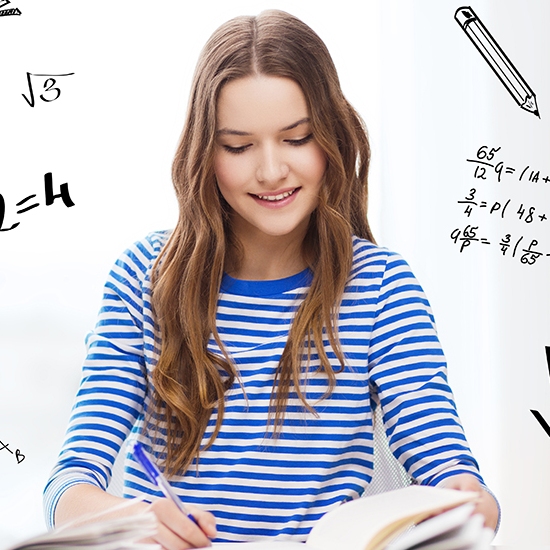 √3
2=4
65/12 9=(1A+
3/4=P(48+
9 65/P = 3/4(P/65-
x B